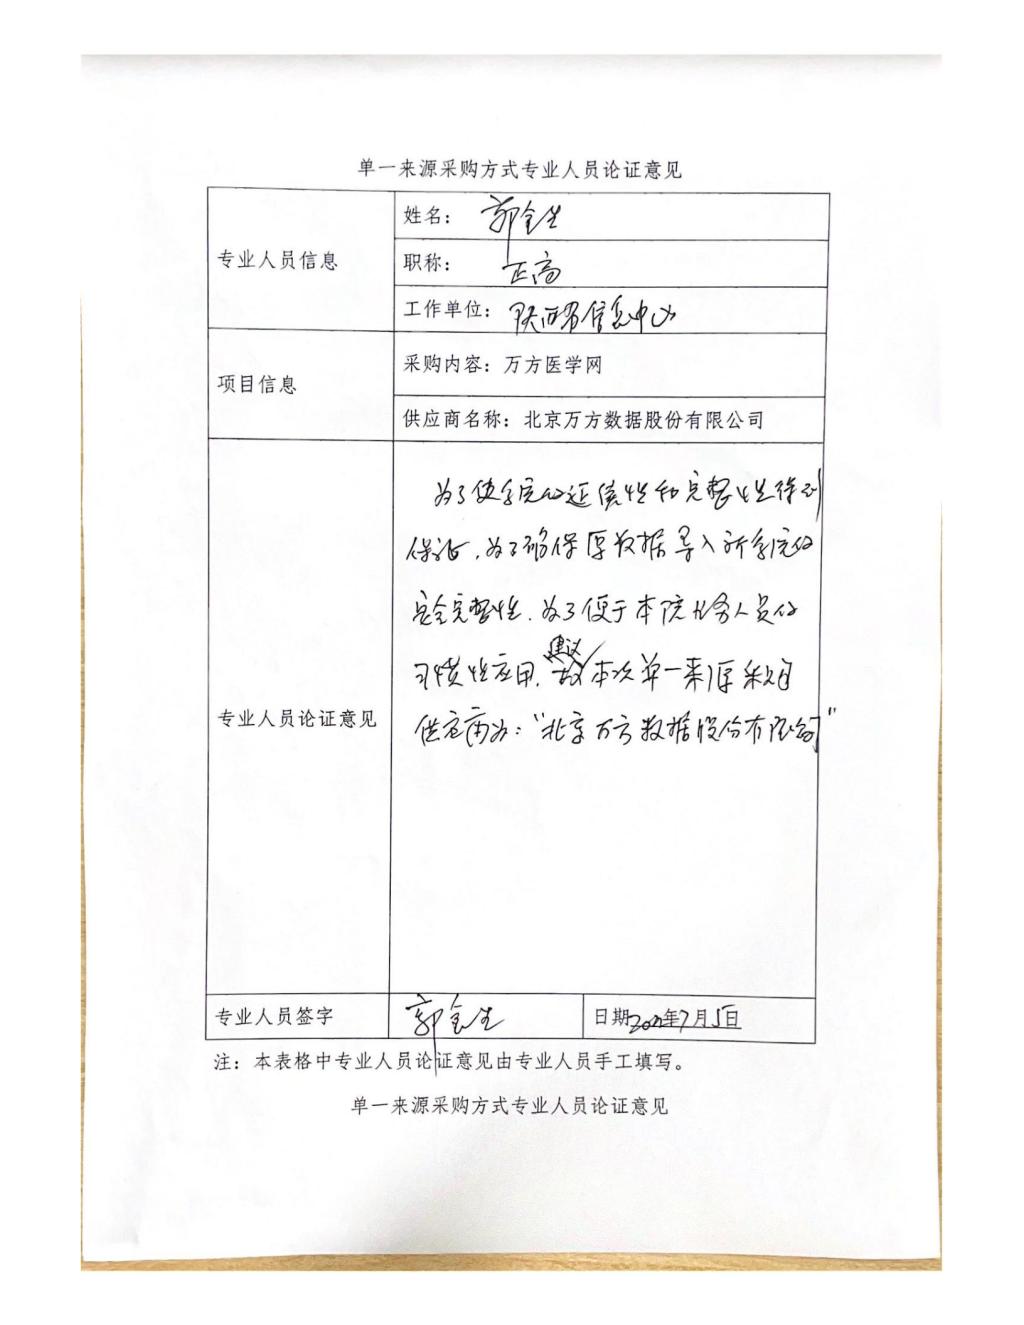 单一来源采购方式专业人员论证意见
专业人员信息
姓名：郭全生
职称：正高
工作单位：陕西省信息中心
项目信息
采购内容：万方医学网
供应商名称：北京万方数据股份有限公司
专业人员论证意见
为了使系统的延续性和完整性得到
保证，为了确保原数据导入新系统的
安全完整性，为了便于本院业务人员的
习惯性应用，建议本次单一来源采购
供应商为："北京万方数据股份有限公司"
专业人员签字
郭全生
日期2022年7月5日
注：本表格中专业人员论证意见由专业人员手工填写。
单一来源采购方式专业人员论证意见